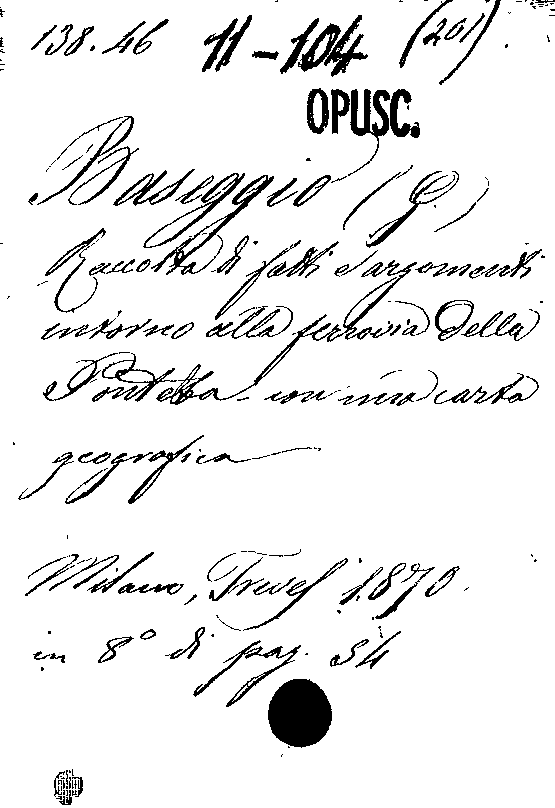 138.46 11-104 (201).
OPUSC.
Baseggio (G.)
Raccolta di fatti e argomenti
intorno alla ferrovia della
Pontebba - con una carta
geografica
Milano, Treves 1870.
in 8° di pag. 54